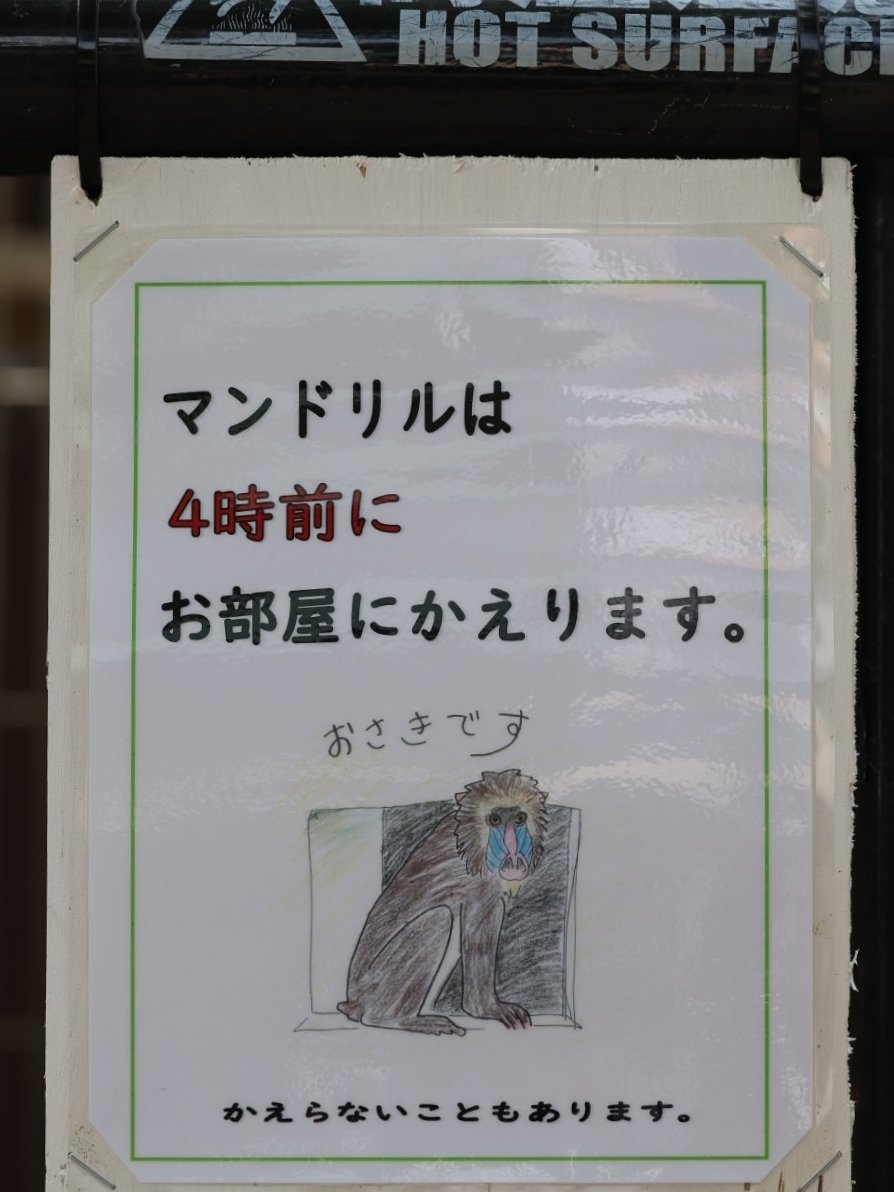 HOT SURFACE
マンドリルは
4時前に
お部屋にかえります。
おさきです
かえらないこともあります。